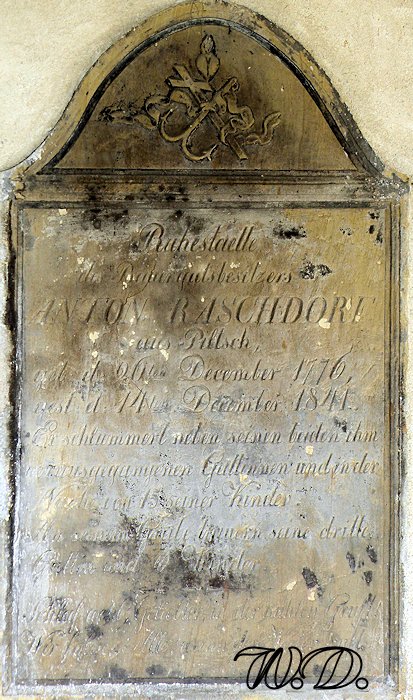 Ruhestaelle
des Bauergutsbesitzers
ANTON RASCHDORF
aus Piltsch,
geb. d. 26ten December 1776,
gest. d. 14ten December 1841.
Er schlummert neben seinen beiden ihm
vorausgegangenen Gattinnen und in der
Nähe von 13 seiner Kinder.
An seinem Grabe trauern seine dritte
Gattin und Kinder.
Schlaf wohl, in der kühlen Gruft
W.D.